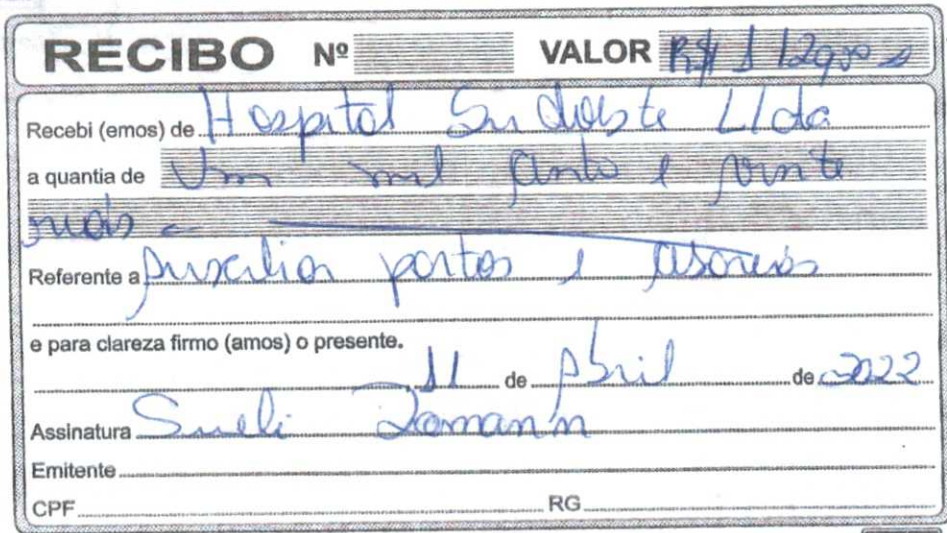 RECIBO Nº VALOR R$ 1.120,00
Recebi (emos) de Hospital Sudoeste Ltda
a quantia de Um mil cento e vinte
reais
Referente a Auxilio partos e
e para clareza firmo (amos) o presente.
11 de Abril de 2022
Assinatura Sueli Zomann
Emitente
CPF RG